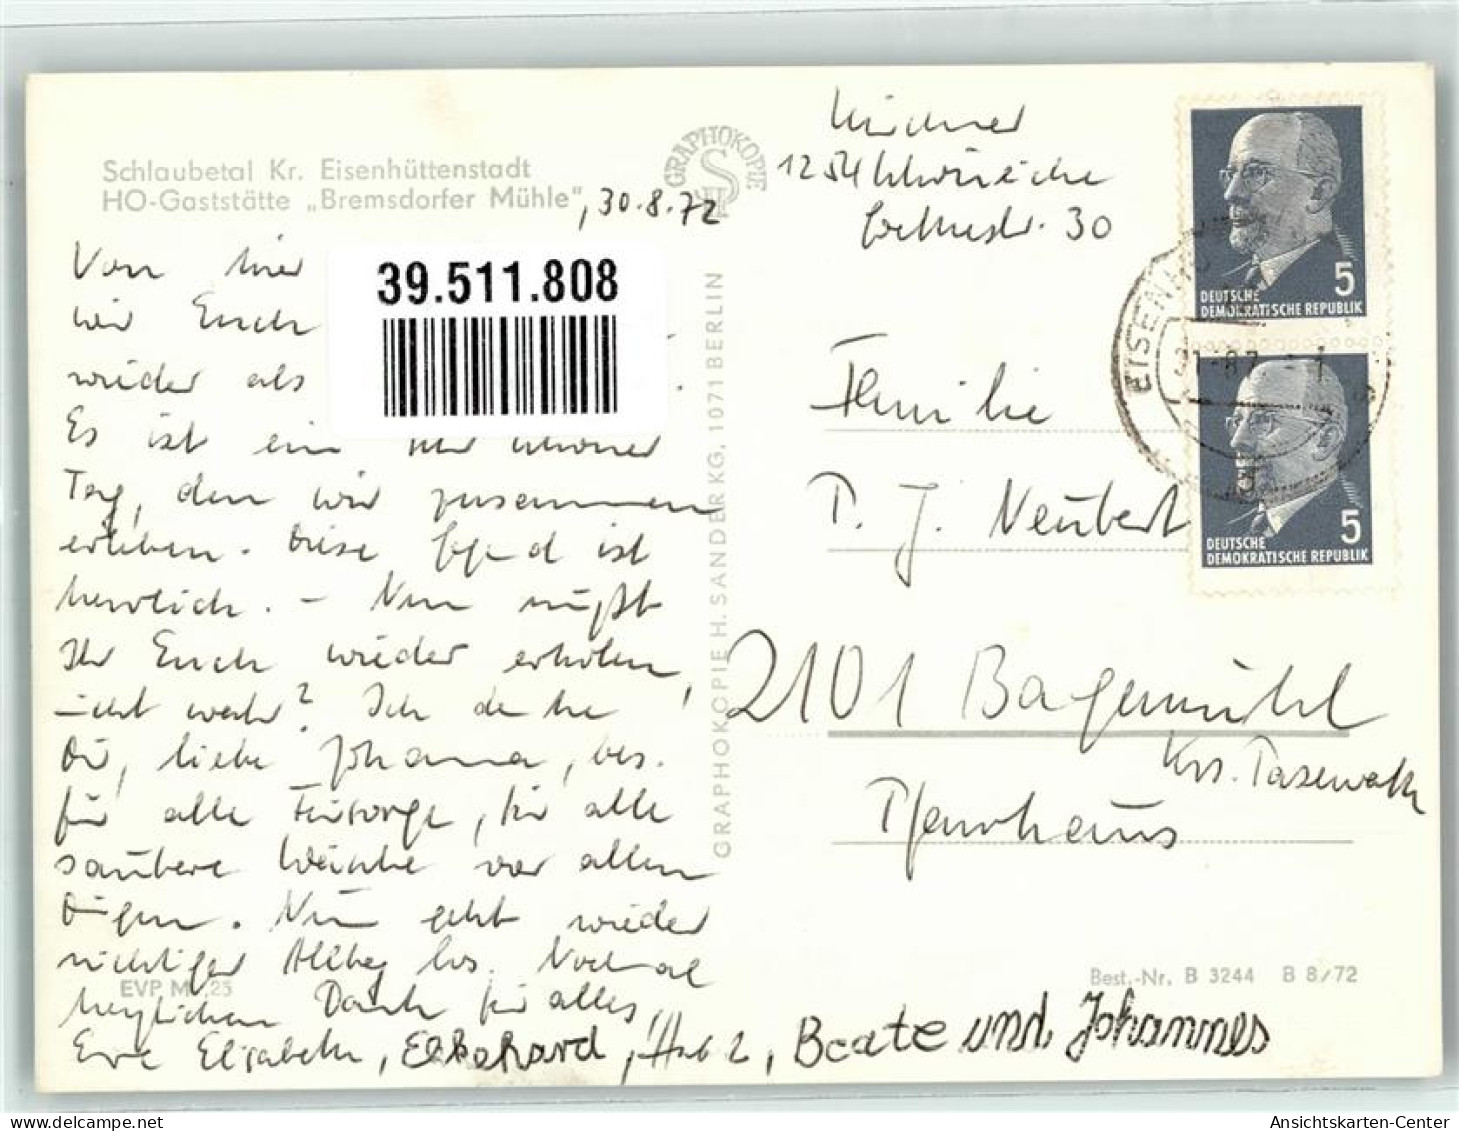 Schlaubetal Kr. Eisenhüttenstadt
HO-Gaststätte „Bremsdorfer Mühle"
, 30.8.72
GRAPHOKOPIE
Von hier
wir Euch
wieder als
Es ist ein schöner
Tag, den wir zusammen
erleben. Diese Gegend ist
herrlich. - Nun müßt
Ihr Euch wieder erholen,
nicht wahr? Ich danke
Dir, liebe Johanna, bes.
für alle Fürsorge, für alle
saubere Wäsche vor allen
Dingen. Nun geht wieder
richtiger Alltag los. Nochmal
herzlichen Dank für alles,
Eure Elisabeth, Ekkehard, Beate und Johannes
EVP M ,25
39.511.808
GRAPHOKOPIE H. SANDER KG, 1071 BERLIN
1254 Schöneiche
30
DEUTSCHE
DEMOKRATISCHE REPUBLIK
5
DEUTSCHE
DEMOKRATISCHE REPUBLIK
5
EISENHÜ
Familie
P. J. Neubert
2101 Bagemühl
Krs. Pasewalk
Pfarrhaus
Best.-Nr. B 3244 B 8/72
Ansichtskarten-Center